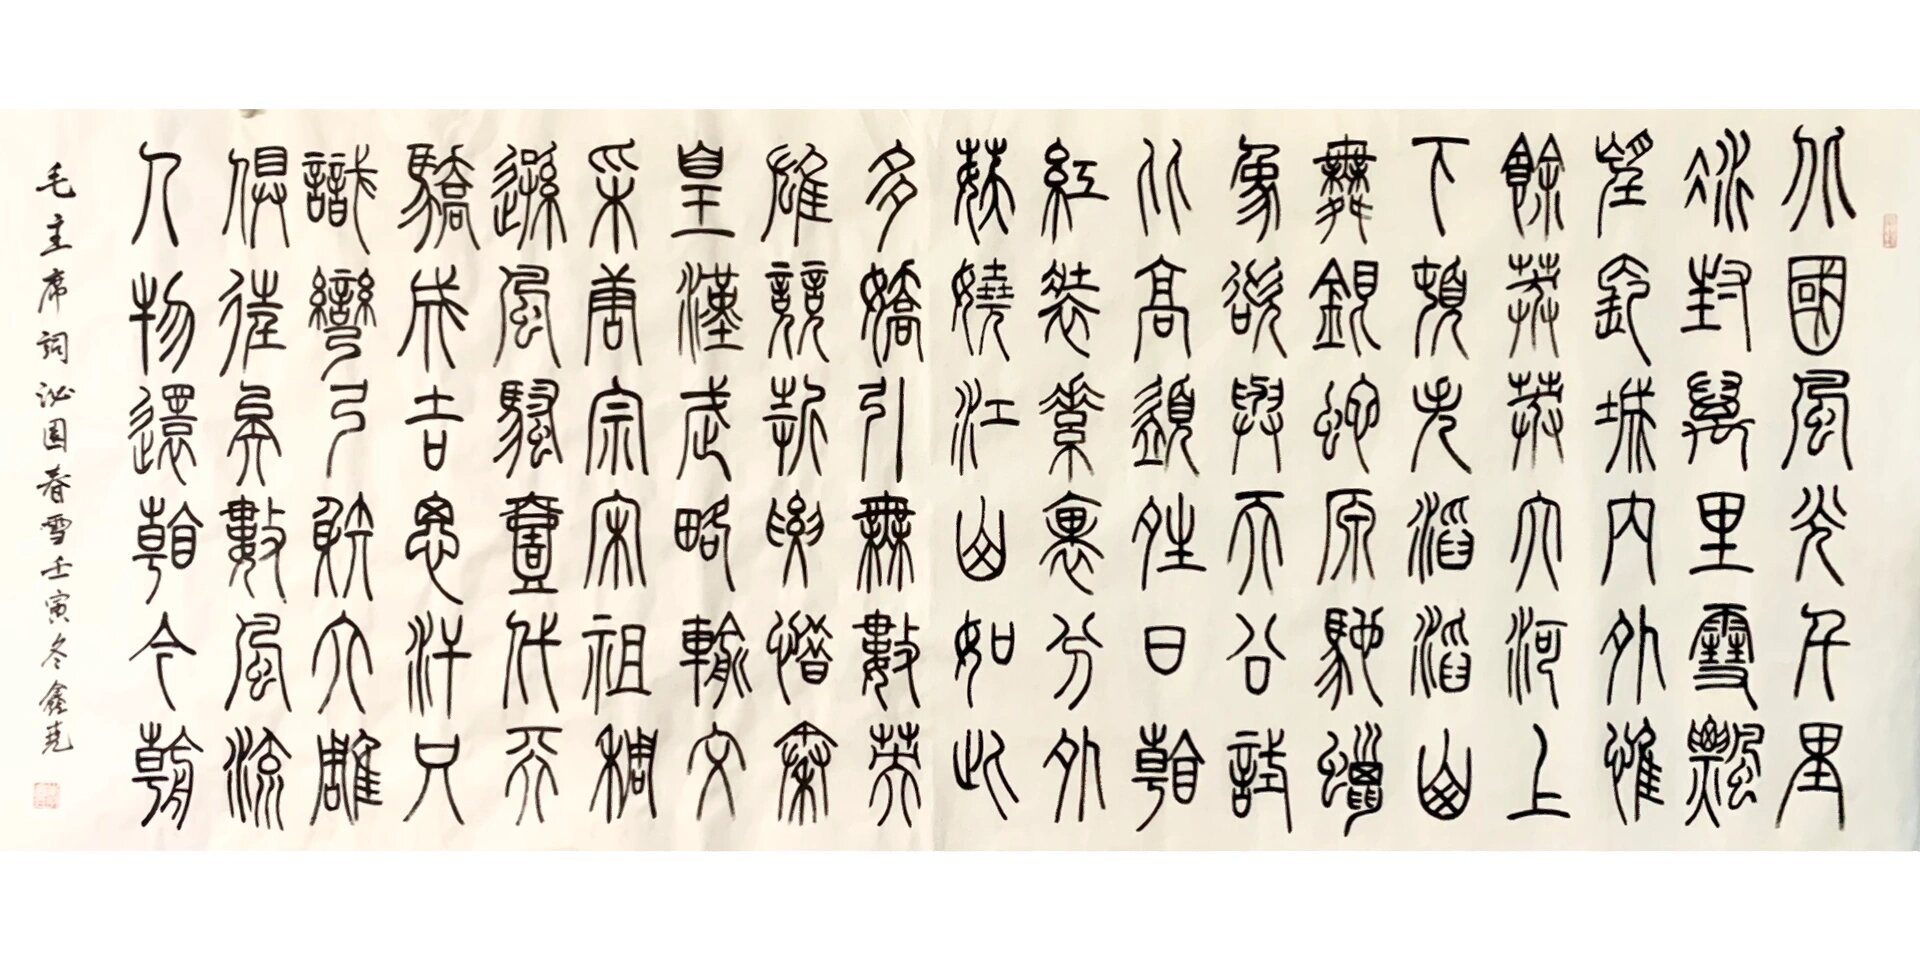 北國風光千里
冰封萬里雪飄
望長城內外惟
餘莽莽大河上
下頓失滔滔山
舞銀蛇原馳蠟
象欲與天公試
比高須晴日看
紅裝素裹分外
妖嬈江山如此
多嬌引無數英
雄競折腰惜秦
皇漢武略輸文
采唐宗宋祖稍
遜風騷壹代天
驕成吉思汗只
識彎弓射大雕
俱往矣數風流
人物還看今朝
毛主席詞沁園春雪壬寅冬鑫尧